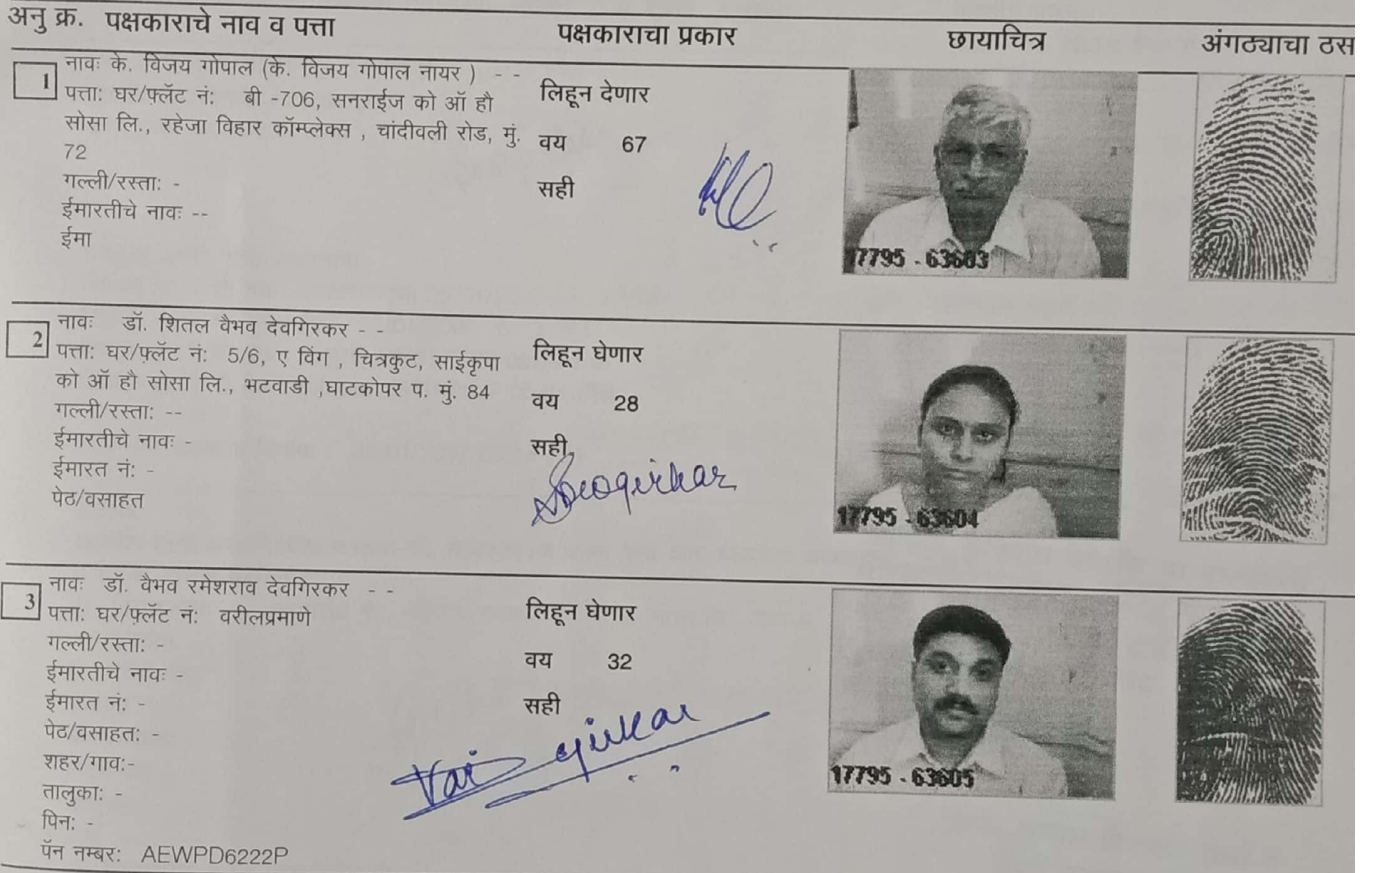 अनु क्र. पक्षकाराचे नाव व पत्ता पक्षकाराचा प्रकार छायाचित्र अंगठ्याचा ठस
1
नावः के. विजय गोपाल (के. विजय गोपाल नायर ) - -
पत्ता: घर/फ़्लॅट नं: बी -706, सनराईज को ऑ हौ
सोसा लि., रहेजा विहार कॉम्प्लेक्स , चांदीवली रोड, मुं.
72
गल्ली/रस्ता: -
ईमारतीचे नावः --
ईमा
लिहून देणार
वय 67
सही
17795 - 63603
2
नावः डॉ. शितल वैभव देवगिरकर - -
पत्ता: घर/फ़्लॅट नं: 5/6, ए विंग , चित्रकुट, साईकृपा
को ऑ हौ सोसा लि., भटवाडी ,घाटकोपर प. मुं. 84
गल्ली/रस्ता: --
ईमारतीचे नावः -
ईमारत नं: -
पेठ/वसाहत
लिहून घेणार
वय 28
सही
17795 - 63604
3
नावः डॉ. वैभव रमेशराव देवगिरकर - -
पत्ता: घर/फ़्लॅट नं: वरीलप्रमाणे
गल्ली/रस्ता: -
ईमारतीचे नावः -
ईमारत नं: -
पेठ/वसाहत: -
शहर/गाव:-
तालुका: -
पिन: -
पॅन नम्बर: AEWPD6222P
लिहून घेणार
वय 32
सही
17795 - 63605